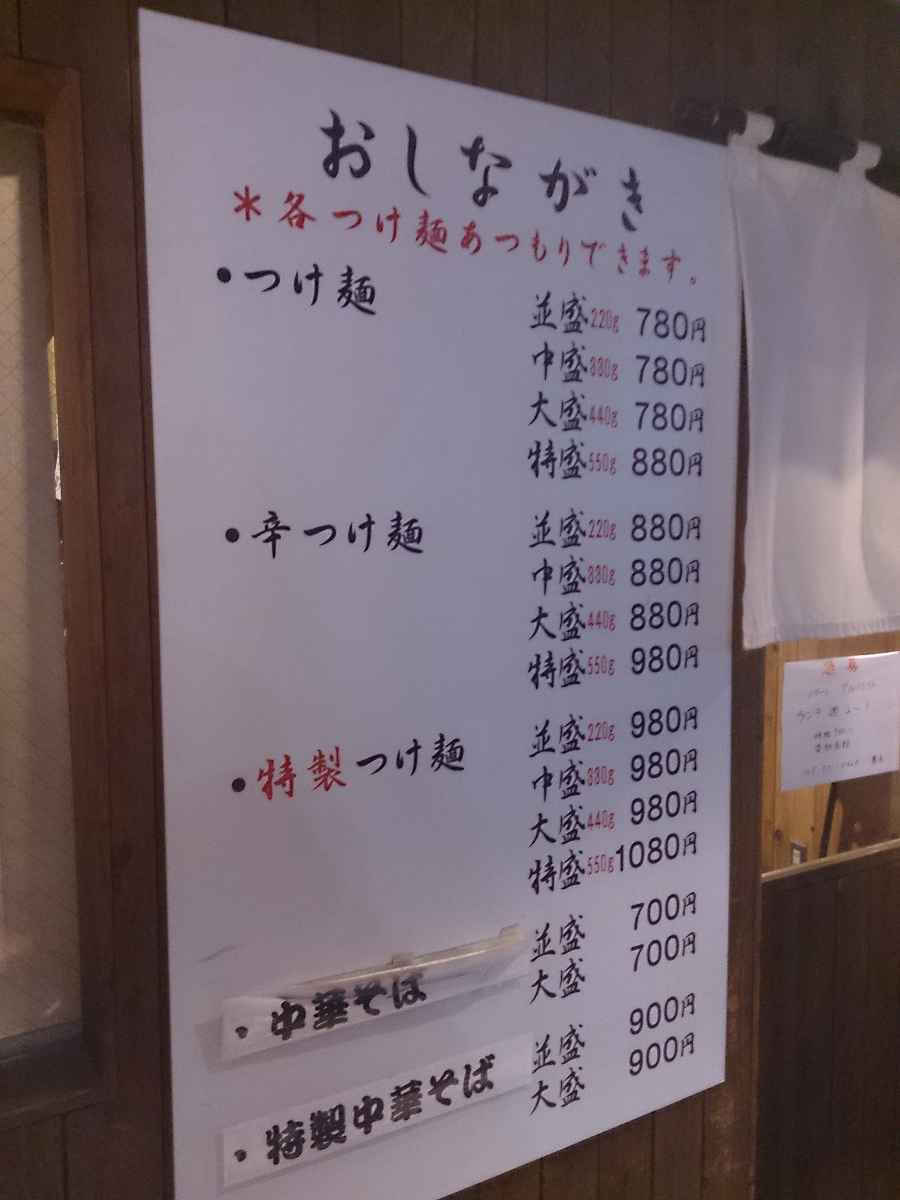 おしながき
*各つけ麺あつもりできます。
・つけ麺
並盛220g 780円
中盛330g 780円
大盛440g 780円
特盛550g 880円
・辛つけ麺
並盛220g 880円
中盛330g 880円
大盛440g 880円
特盛550g 980円
・特製つけ麺
並盛220g 980円
中盛330g 980円
大盛440g 980円
特盛550g 1080円
・中華そば
並盛 700円
大盛 700円
・特製中華そば
並盛 900円
大盛 900円
急募